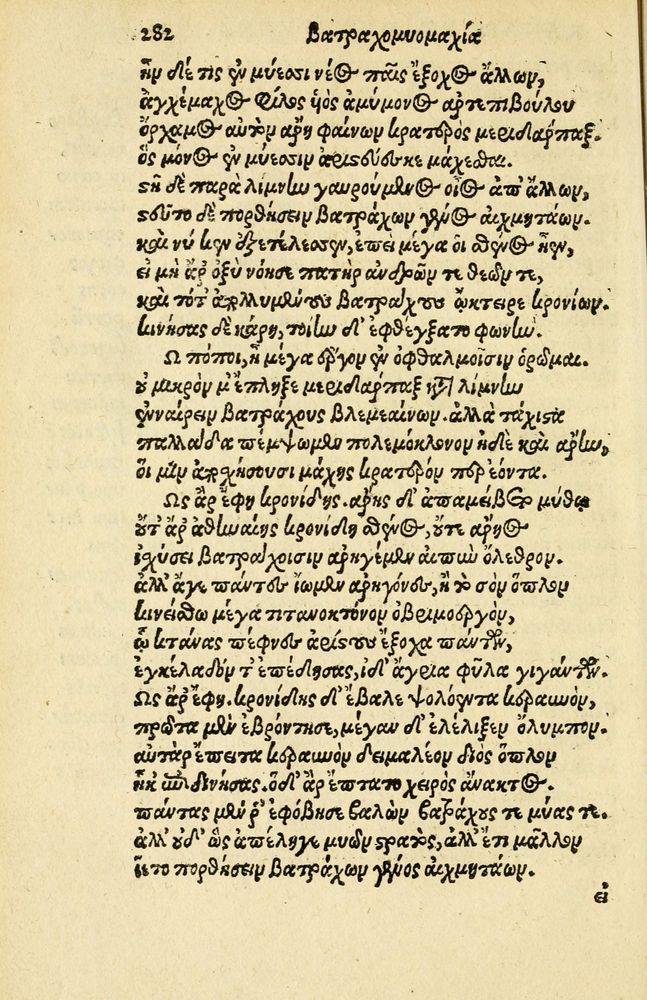 282 Βατραχομυομαχία
ἦν δέ τις ἐν μύεσσι νέος παῖς ἔξοχος ἄλλων,
ἀγχέμαχος φίλος ὑὸς ἀμύμονος ἀρτεπιβούλου
ὄρχαμος αὐτὸν ἄρην φαίνων κρατερὸς μεριδάρπαξ.
ὃς μόνος ἐν μύεσσιν ἀρίστευσκε μάχεσθαι.
στῆ δὲ παρὰ λίμνῳ γαυρούμενος οἶος ἀπ' ἄλλων,
στεῦτο δὲ πορθήσειν βατράχων γένος αἰχμητάων.
καὶ νύ κεν ἐξετέλεσσεν, ἐπεὶ μέγα οἱ σθένος ἦεν,
εἰ μὴ ἄρ' ὀξὺ νόησε πατὴρ ἀνδρῶν τε θεῶν τε,
καὶ τότ' ἀπολλυμένους βατράχους ᾤκτειρε κρονίων.
κινήσας δὲ κάρη, τοίην δ' ἐφθέγξατο φωνήν.
Ὢ πόποι, ἦ μέγα ἔργον ἐν ὀφθαλμοῖσιν ὁρῶμαι.
οὐ μικρόν μ' ἔπληξε μεριδάρπαξ κατὰ λίμνην
ἐναίρειν βατράχους βλεμεαίνων. ἀλλὰ τάχιστα
παλλάδα πέμψωμεν πολεμόκλονον ἠδὲ καὶ ἄρην,
οἵ μιν ἀποσχήσουσι μάχης κρατερόν περ ἐόντα.
Ὣς ἄρ' ἔφη κρονίδης. ἄρης δ' ἀπαμείβετο μύθῳ
οὔτ' ἄρ' ἀθηναίης κρονίδη σθένος, οὔτε ἄρηος
ἰσχύσει βατράχοισιν ἀρηγέμεν αἰπὺν ὄλεθρον.
ἀλλ' ἄγε πάντες ἴωμεν ἀρηγόνες, ἢ τὸ σὸν ὅπλον
κινείσθω μέγα τιτανοκτόνον ὀβριμοεργόν,
ᾧ κτάνας πέφνες ἀρίστους ἔξοχα πάντων,
ἐγκέλαδόν τ' ἐπέδησας, ἰδ' ἄγρια φῦλα γιγάντων.
Ὣς ἄρ' ἔφη. κρονίδης δ' ἔβαλε ψολόεντα κεραυνόν,
πρῶτα μὲν ἐβρόντησε, μέγαν δ' ἐλέλιξεν ὄλυμπον.
αὐτὰρ ἔπειτα κεραυνὸν δειμαλέον διὸς ὅπλον
ἧκ' ἐπιδινήσας. ὁ δ' ἄρ' ἔπτατο χειρὸς ἄνακτος.
πάντας μέν ῥ' ἐφόβησε βαλὼν βατράχους τε μύας τε.
ἀλλ' οὐδ' ὣς ἀπέληγε μυῶν στρατὸς, ἀλλ' ἔτι μᾶλλον
ἵετο πορθήσειν βατράχων γένος αἰχμητάων.
εἰ